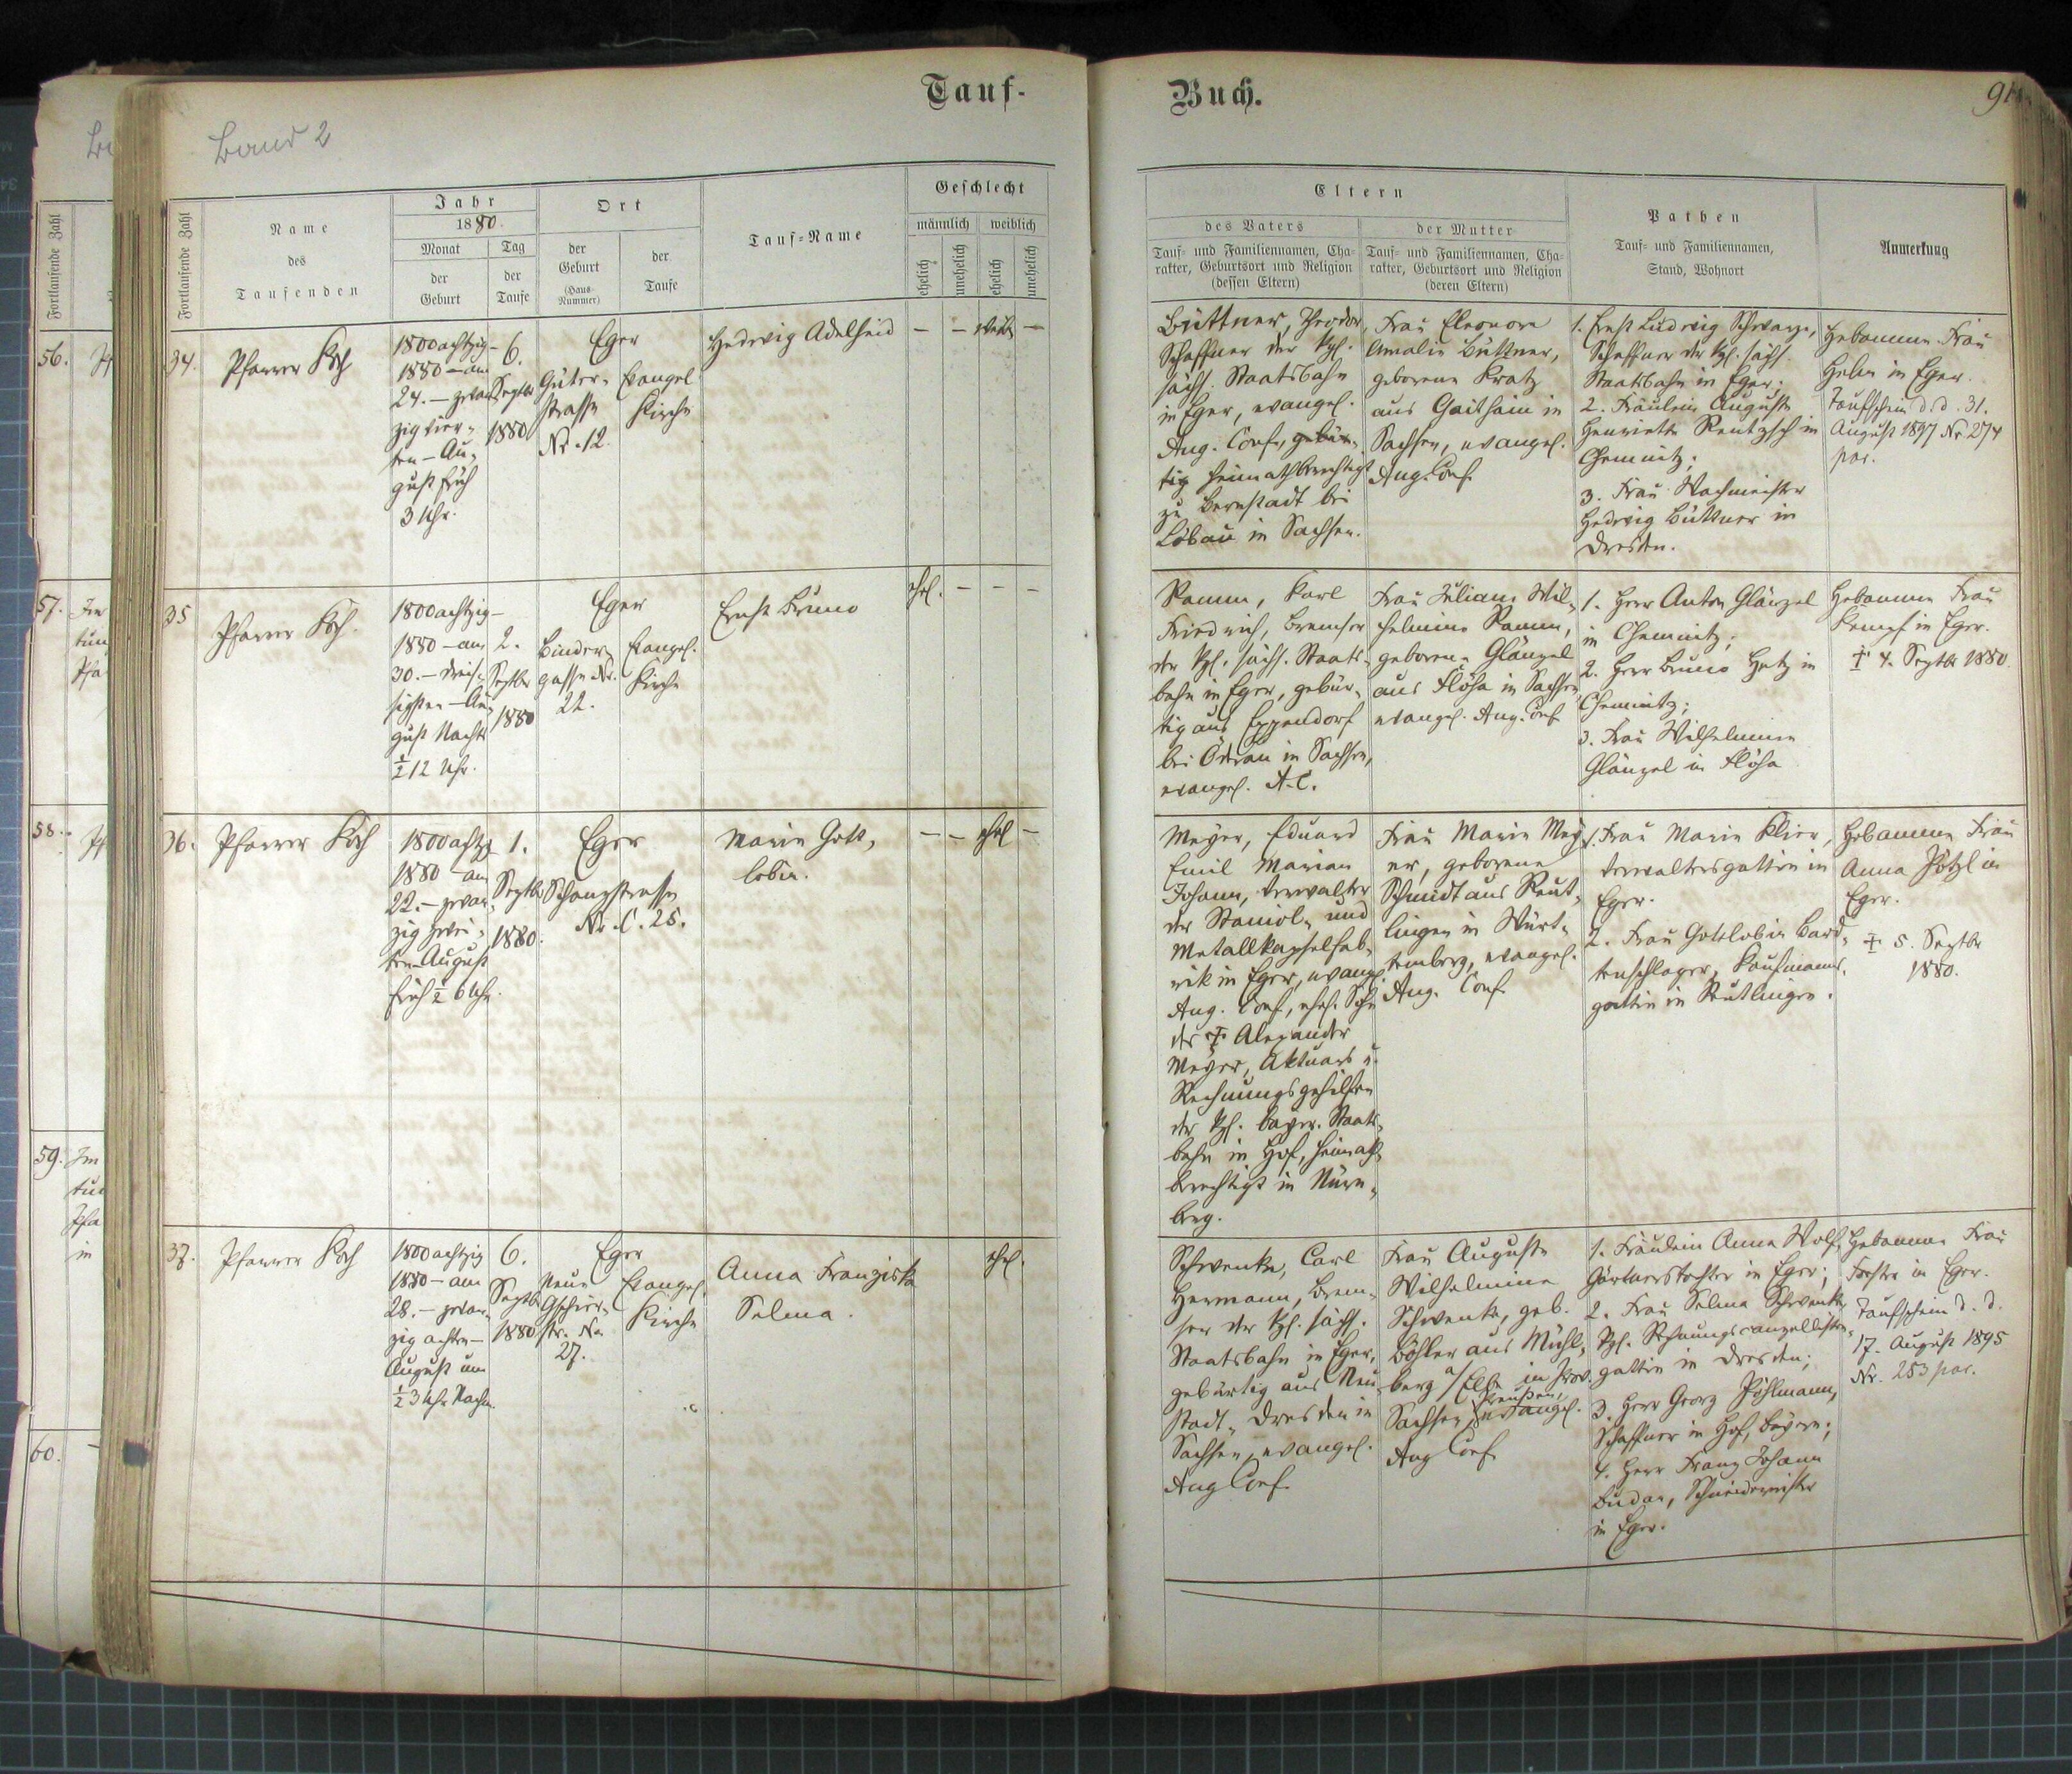 Tauf-
Buch.
91
Band 2
Fortlaufende Zahl
Name
des
Taufenden
Jahr
1880.
Monat
der
Geburt
Tag
der
Taufe
Ort
der
Geburt
(Haus-
Nummer)
der
Taufe
Tauf-Name
Geschlecht
männlich
weiblich
ehelich
unehelich
ehelich
unehelich
Eltern
des Vaters
Tauf- und Familiennamen, Cha-
rakter, Geburtsort und Religion
(dessen Eltern)
der Mutter
Tauf- und Familiennamen, Cha-
rakter, Geburtsort und Religion
(deren Eltern)
Pathen
Tauf- und Familiennamen,
Stand, Wohnort
Anmerkung
Fortlaufende Zahl
56.
57.
58.
59.
60.
34.
Pfarrer Koch
1800achtzig-
1880 - am
24. - zwan
zig vier-
ten - Au-
gust früh
3 Uhr.
6.
Septbr
1880
Eger
Güter-
strasse
Nr. 12.
Evangel.
Kirche
Hedwig Adelheid
- - -
Büttner, Theodor,
Schaffner der kgl.
sächs. Staatsbahn
in Eger, evangel.
Aug. Conf., gebür-
tig heimathberechtigt
zu Bernstadt bei
Löbau in Sachsen.
Frau Eleonore
Amalie Büttner,
geborene Kratz
aus Gaithain in
Sachsen, evangel.
Aug. Conf.
1. Ernst Ludwig Schwarze,
Schaffner der kgl. sächs.
Staatsbahn in Eger;
2. Fräulein Auguste
Henriette Rentzsch in
Chemnitz;
3. Frau Wachmeister
Hedwig Büttner in
Dresden.
Hebamme Frau
in Eger.
Taufschein d. d. 31.
August 1897 Nr 274
par.
35
Pfarrer Koch.
1800achtzig-
1880 - am
30. - dreis-
sigsten - Au-
gust Nachts
½12 Uhr.
2.
Septbr
1880
Eger
Binder-
gasse Nr.
22.
Evangel.
Kirche
Ernst Bruno
ehel. - - -
Ramm, Karl
Friedrich, Bremser
der kgl. sächs. Staats-
bahn in Eger, gebür-
tig aus Eppendorf
bei Öderan in Sachsen,
evangel. A. C.
Frau Juliane Wil-
helmine Ramm,
geborene Glänzel
aus Flöha in Sachsen,
evangel. Aug. Conf.
1. Herr Anton Glänzel
in Chemnitz;
2. Herr Bruno Hetz in
Chemnitz;
3. Frau Wilhelmine
Glänzel in Flöha
Hebamme Frau
Kempf in Eger.
† 4. Septbr 1880.
36.
Pfarrer Koch
1800achtzg
1880 am
22. - zwan-
zig zwei-
ten - August
früh ½ 6 Uhr.
1.
Septbr
1880.
Eger
Schanzstrasse
Nr. C. 25.
Marie Gott-
lobin.
- - ehel -
Meyer, Eduard
Emil Marian
Johann, Verwalter
der Staniol- und
Metallkapselfab-
rik in Eger, evangel.
Aug. Conf., ehel. Sohn
des † Alexander
Meyer, Aktuars u.
Rechnungsgehilfen
der kgl. bayer. Staats-
bahn in Hof, heimath-
berechtigt in Nürn-
berg.
Frau Marie Mey-
er, geborene
Schmidt aus Reut-
lingen in Würt-
temberg, evangel.
Aug. Conf.
1. Frau Marie Klier,
Verwaltersgattin in
Eger.
2. Frau Gottlobin Bard-
tenschlager, Kaufmanns-
gattin in Reutlingen.
Hebamme Frau
Anna Pötzl in
Eger.
† 5. Septbr
1880.
37.
Pfarrer Koch
1800achtzig
1880 - am
28. - zwan-
zig achten -
August um
½3 Uhr Nachm.
6.
Septbr
1880
Eger
Neue
str. No.
27.
Evangel.
Kirche
Anna Franziska
Selma.
ehel.
Schwenke, Carl
Hermann, Brem-
ser der kgl. sächs.
Staatsbahn in Eger,
gebürtig aus Neu-
stadt-Dresden in
Sachsen, evangel.
Aug Conf.
Frau Auguste
Wilhelmine
Schwenke, geb.
Böhler aus Mühl-
berg a/Elbe in Prov.
Sachsen, Preußen, evangel.
Aug Conf.
1. Fräulein Anna Wolf,
Gärtnerstochter in Eger;
2. Frau Selma Schwenke,
kgl. Rechnungscanzellisten-
gattin in Dresden;
3. Herr Georg Pöhlmann,
Schaffner in Hof, Bayern;
4. Herr Franz Johann
Budar, Schneidermeister
in Eger.
Hebamme Frau
Forster in Eger.
Taufschein d. d.
17. August 1895
Nr. 253 par.